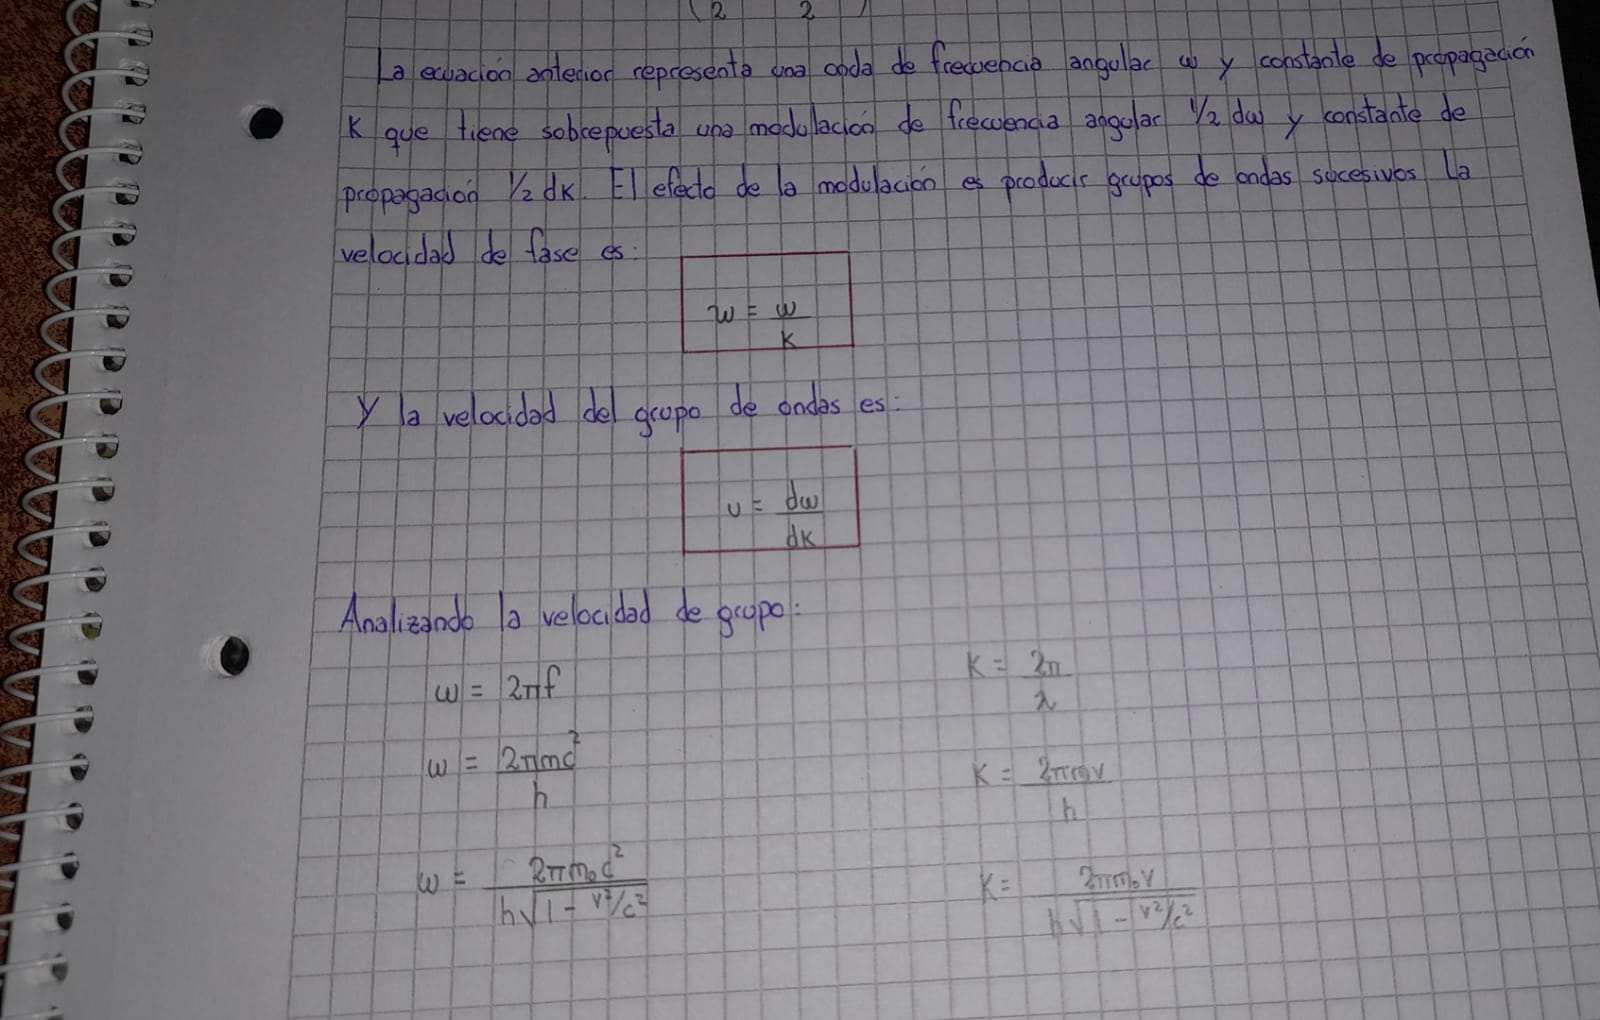 (2 2 )
La ecuación anterior representa una onda de frecuencia angular ω y constante de propagación
K que tiene sobrepuesta una modulación de frecuencia angular 1/2 dω y constante de
propagación 1/2 dK. El efecto de la modulación es producir grupos de ondas sucesivos La
velocidad de fase es:
w = ω/K
Y la velocidad del grupo de ondas es:
u = dω/dK
Analizando la velocidad de grupo:
ω = 2πf K = 2π/λ
ω = 2πmc²/h K = 2πmv/h
ω = 2πm₀c²/h√1 - v²/c² K = 2πm₀v/h√1 - v²/c²